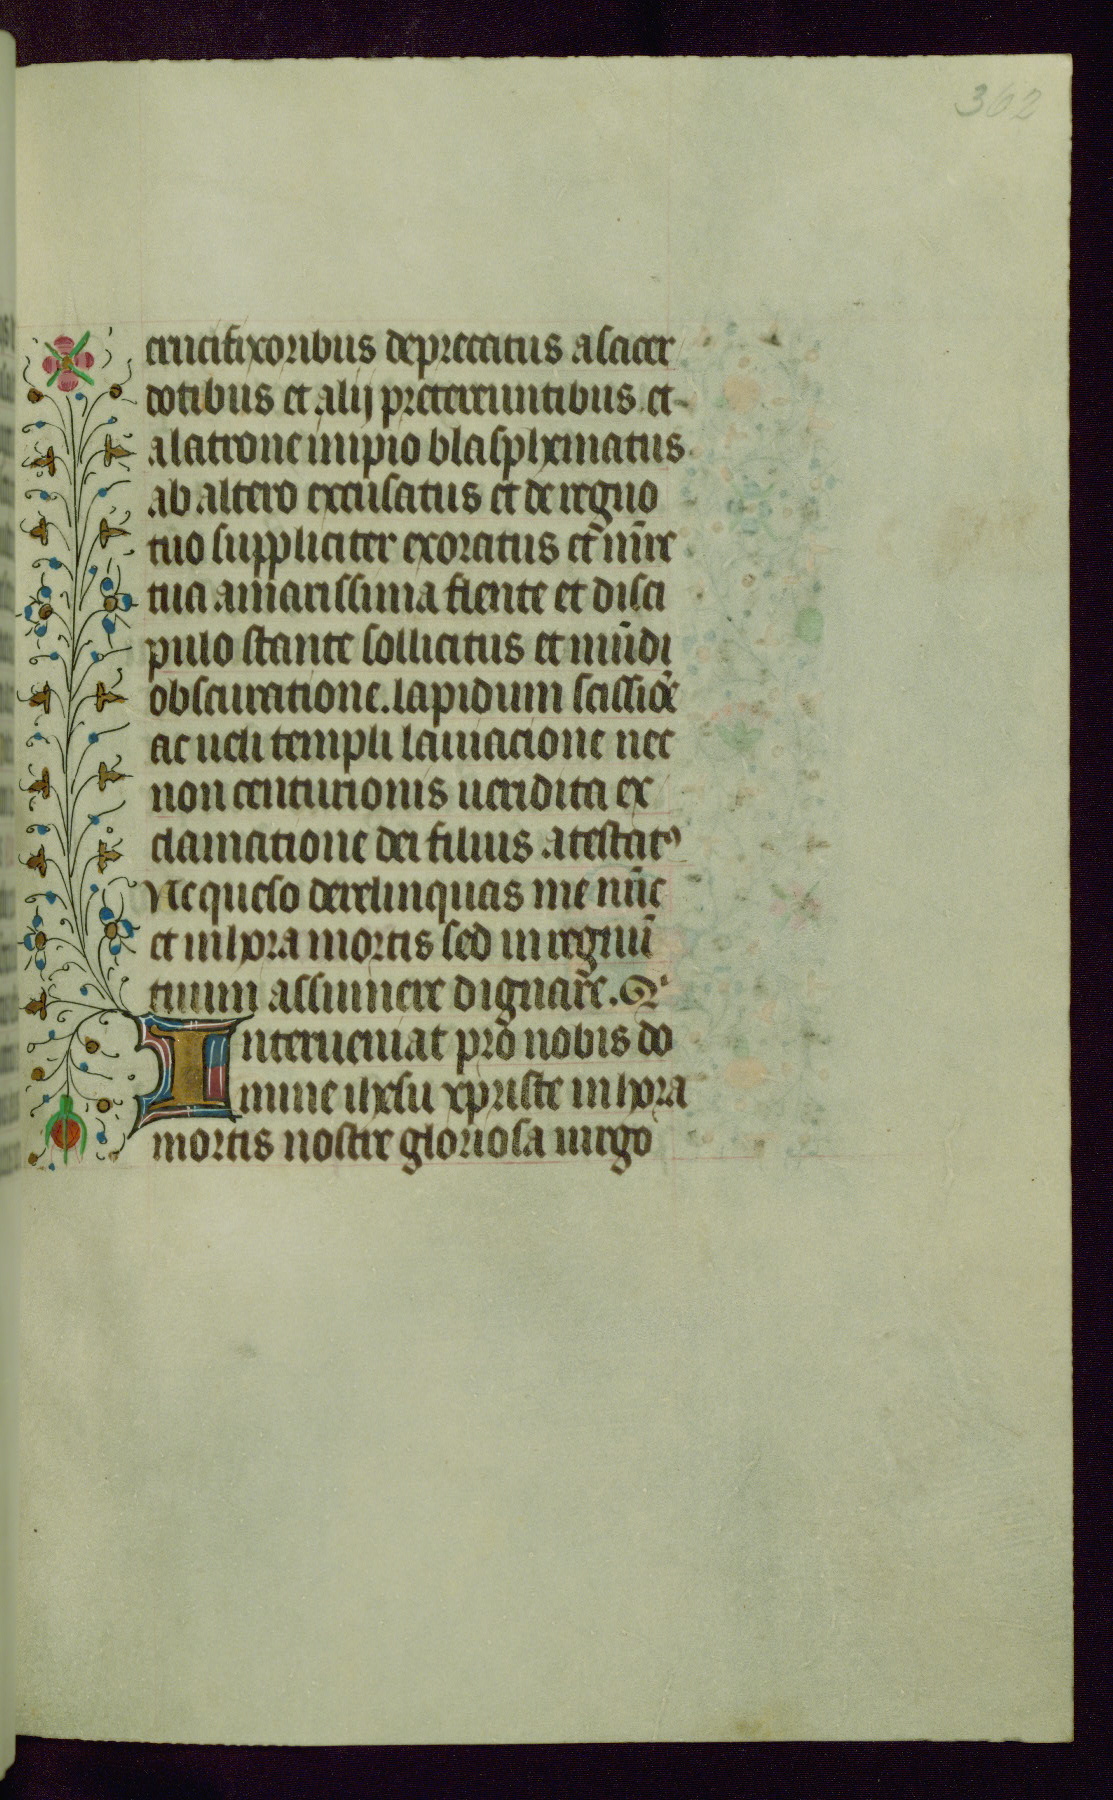 362
crucifixoribus deprecatus a sacer
dotibus et alij pretereuntibus et
a latrone impio blasphematus
ab altero excusatus et de regno
tuo suppliciter exoratus et m̄re
tua amarissima flente et disci
pulo stante sollicitus et mūdi
obscuratione. lapidum scissiōe
ac ueli templi lauiacione nec
non centurionis ueridita ex
clamatione dei filius atestatꝰ
Ne queso derelinquas me nūc
et in hora mortis sed in regnū
tuum assumere dignar̄e. Or̄
Interueniat pro nobis do
mine ihesu xpriste in hora
mortis nostre gloriosa uirgo